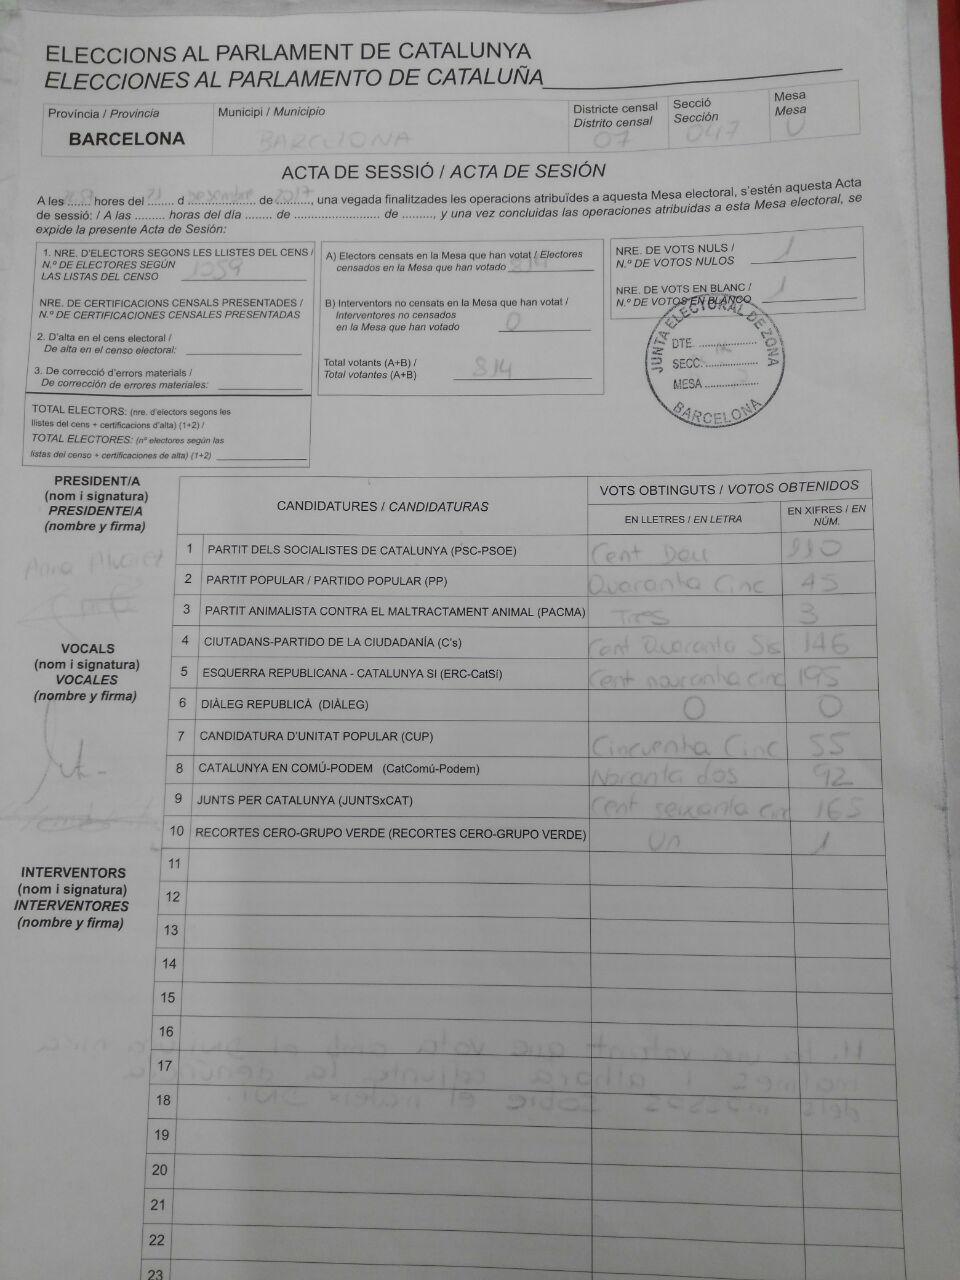 ELECCIONS AL PARLAMENT DE CATALUNYA
ELECCIONES AL PARLAMENTO DE CATALUÑA
Província / Provincia
BARCELONA
Municipi / Municipio
BARCELONA
Districte censal
Distrito censal
07
Secció
Sección
047
Mesa
Mesa
U
ACTA DE SESSIÓ / ACTA DE SESIÓN
A les ....... hores del ....... d Desembre de 2017, una vegada finalitzades les operacions atribuïdes a aquesta Mesa electoral, s'estén aquesta Acta
de sessió: / A las ......... horas del día ....... de ......................... de ........., y una vez concluidas las operaciones atribuidas a esta Mesa electoral, se
expide la presente Acta de Sesión:
1. NRE. D'ELECTORS SEGONS LES LLISTES DEL CENS /
N.º DE ELECTORES SEGÚN
LAS LISTAS DEL CENSO 1059
NRE. DE CERTIFICACIONS CENSALS PRESENTADES /
N.º DE CERTIFICACIONES CENSALES PRESENTADAS
2. D'alta en el cens electoral /
De alta en el censo electoral:
3. De correcció d'errors materials /
De corrección de errores materiales:
TOTAL ELECTORS: (nre. d'electors segons les
llistes del cens + certificacions d'alta) (1+2) /
TOTAL ELECTORES: (nº electores según las
listas del censo + certificaciones de alta) (1+2)
A) Electors censats en la Mesa que han votat / Electores
censados en la Mesa que han votado 814
B) Interventors no censats en la Mesa que han votat /
Interventores no censados
en la Mesa que han votado 0
Total votants (A+B) /
Total votantes (A+B) 814
NRE. DE VOTS NULS /
N.º DE VOTOS NULOS 1
NRE. DE VOTS EN BLANC /
N.º DE VOTOS EN BLANCO 1
JUNTA ELECTORAL DE ZONA
DTE. ..................
SECC. ..................
MESA ..................
BARCELONA
PRESIDENT/A
(nom i signatura)
PRESIDENTE/A
(nombre y firma)
Anna Alvarez
VOCALS
(nom i signatura)
VOCALES
(nombre y firma)
INTERVENTORS
(nom i signatura)
INTERVENTORES
(nombre y firma)
CANDIDATURES / CANDIDATURAS
VOTS OBTINGUTS / VOTOS OBTENIDOS
EN LLETRES / EN LETRA
EN XIFRES / EN
NÚM.
1 PARTIT DELS SOCIALISTES DE CATALUNYA (PSC-PSOE) Cent Deu 110
2 PARTIT POPULAR / PARTIDO POPULAR (PP) Quaranta Cinc 45
3 PARTIT ANIMALISTA CONTRA EL MALTRACTAMENT ANIMAL (PACMA) Tres 3
4 CIUTADANS-PARTIDO DE LA CIUDADANÍA (C's) Cent Quaranta Sis 146
5 ESQUERRA REPUBLICANA - CATALUNYA SI (ERC-CatSí) Cent nauranta cinc 195
6 DIÀLEG REPUBLICÀ (DIÀLEG) 0 0
7 CANDIDATURA D'UNITAT POPULAR (CUP) Cincuenta Cinc 55
8 CATALUNYA EN COMÚ-PODEM (CatComú-Podem) Noranta dos 92
9 JUNTS PER CATALUNYA (JUNTSxCAT) Cent seixanta cinc 165
10 RECORTES CERO-GRUPO VERDE (RECORTES CERO-GRUPO VERDE) Un 1
11
12
13
14
15
16
17
18
19
20
21
22
23